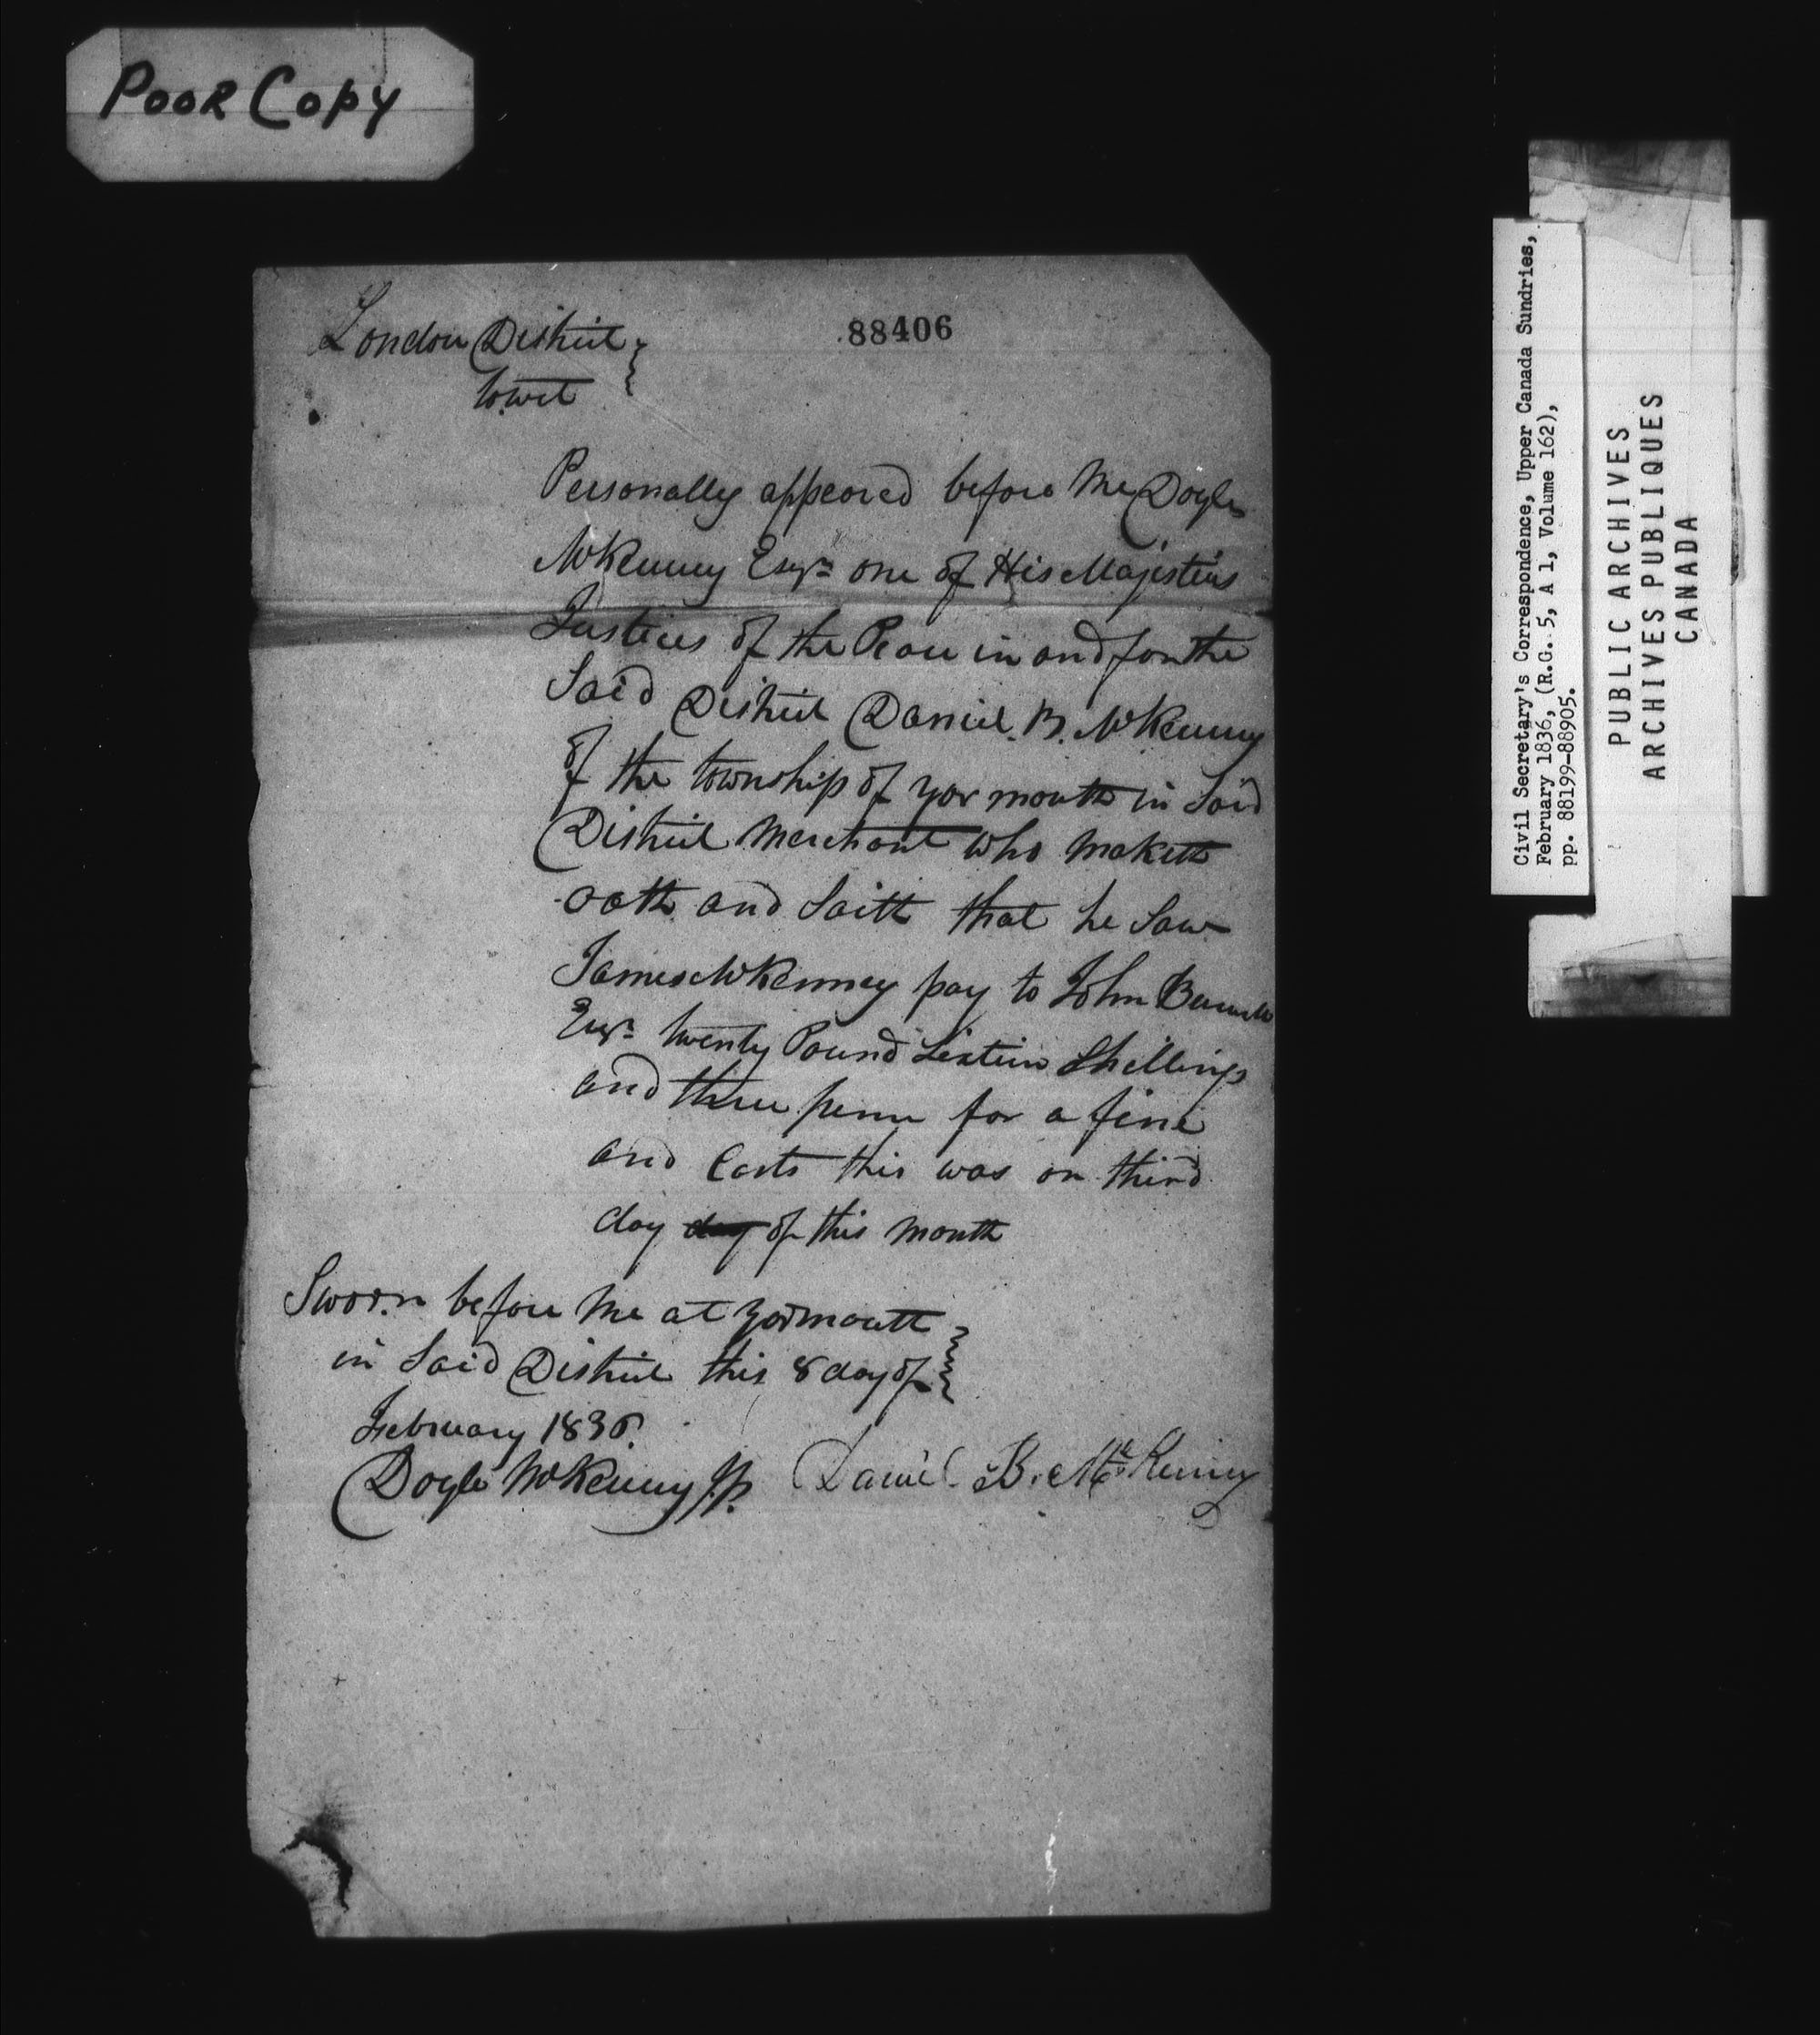 Poor Copy
88406
London District
towit
Personally appeared before Me Doyle
McKenny Esqr one of His Majesties
Justices of the Peace in and for the
Said District Daniel. B. McKenny
of the township of yarmouth in Said
District Merchant who maketh
oath and Saith that he Saw
James McKenney pay to John
Esqr twenty Pound Sixteen Shillings
and three penc for a fine
and Costs this was on third
day day of this Month
Sworn before Me at yarmouth
in Said District this 8 day of
February 1836.
Doyle McKenny J.P.
Daniel B. McKenney
Civil Secretary's Correspondence, Upper Canada Sundries,
February 1836, (R.G. 5, A 1, Volume 162),
pp. 88199-88905.
PUBLIC ARCHIVES
ARCHIVES PUBLIQUES
CANADA